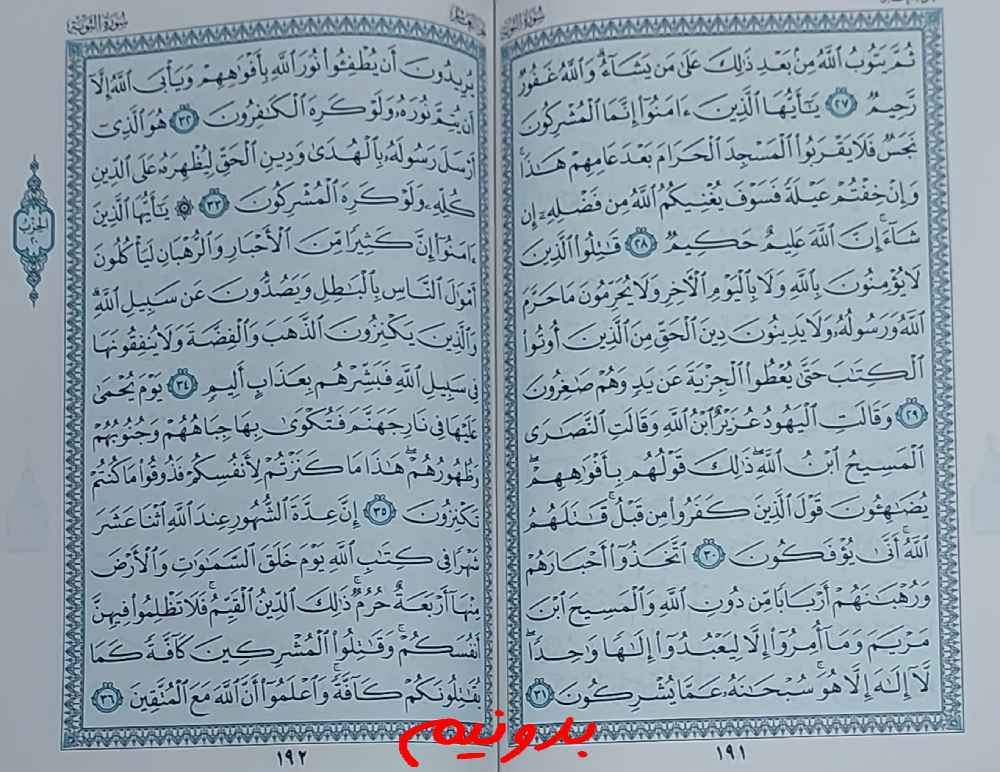 سورة التوبة
ثُمَّ يَتُوبُ ٱللَّهُ مِنۢ بَعْدِ ذَٰلِكَ عَلَىٰ مَن يَشَآءُ ۗ وَٱللَّهُ غَفُورٌ
رَّحِيمٌ ٢٧ يَٰٓأَيُّهَا ٱلَّذِينَ ءَامَنُوٓا۟ إِنَّمَا ٱلْمُشْرِكُونَ
نَجَسٌ فَلَا يَقْرَبُوا۟ ٱلْمَسْجِدَ ٱلْحَرَامَ بَعْدَ عَامِهِمْ هَٰذَا ۚ
وَإِنْ خِفْتُمْ عَيْلَةً فَسَوْفَ يُغْنِيكُمُ ٱللَّهُ مِن فَضْلِهِۦٓ إِن
شَآءَ ۚ إِنَّ ٱللَّهَ عَلِيمٌ حَكِيمٌ ٢٨ قَٰتِلُوا۟ ٱلَّذِينَ
لَا يُؤْمِنُونَ بِٱللَّهِ وَلَا بِٱلْيَوْمِ ٱلْءَاخِرِ وَلَا يُحَرِّمُونَ مَا حَرَّمَ
ٱللَّهُ وَرَسُولُهُۥ وَلَا يَدِينُونَ دِينَ ٱلْحَقِّ مِنَ ٱلَّذِينَ أُوتُوا۟
ٱلْكِتَٰبَ حَتَّىٰ يُعْطُوا۟ ٱلْجِزْيَةَ عَن يَدٍ وَهُمْ صَٰغِرُونَ
٢٩ وَقَالَتِ ٱلْيَهُودُ عُزَيْرٌ ٱبْنُ ٱللَّهِ وَقَالَتِ ٱلنَّصَٰرَى
ٱلْمَسِيحُ ٱبْنُ ٱللَّهِ ۖ ذَٰلِكَ قَوْلُهُم بِأَفْوَٰهِهِمْ ۖ
يُضَٰهِـُٔونَ قَوْلَ ٱلَّذِينَ كَفَرُوا۟ مِن قَبْلُ ۚ قَٰتَلَهُمُ
ٱللَّهُ ۚ أَنَّىٰ يُؤْفَكُونَ ٣٠ ٱتَّخَذُوٓا۟ أَحْبَارَهُمْ
وَرُهْبَٰنَهُمْ أَرْبَابًا مِّن دُونِ ٱللَّهِ وَٱلْمَسِيحَ ٱبْنَ
مَرْيَمَ وَمَآ أُمِرُوٓا۟ إِلَّا لِيَعْبُدُوٓا۟ إِلَٰهًا وَٰحِدًا ۖ
لَّآ إِلَٰهَ إِلَّا هُوَ ۚ سُبْحَٰنَهُۥ عَمَّا يُشْرِكُونَ ٣١
١٩١
سورة التوبة
يُرِيدُونَ أَن يُطْفِـُٔوا۟ نُورَ ٱللَّهِ بِأَفْوَٰهِهِمْ وَيَأْبَى ٱللَّهُ إِلَّآ
أَن يُتِمَّ نُورَهُۥ وَلَوْ كَرِهَ ٱلْكَٰفِرُونَ ٣٢ هُوَ ٱلَّذِىٓ
أَرْسَلَ رَسُولَهُۥ بِٱلْهُدَىٰ وَدِينِ ٱلْحَقِّ لِيُظْهِرَهُۥ عَلَى ٱلدِّينِ
كُلِّهِۦ وَلَوْ كَرِهَ ٱلْمُشْرِكُونَ ٣٣ ۞ يَٰٓأَيُّهَا ٱلَّذِينَ
ءَامَنُوٓا۟ إِنَّ كَثِيرًا مِّنَ ٱلْأَحْبَارِ وَٱلرُّهْبَانِ لَيَأْكُلُونَ
أَمْوَٰلَ ٱلنَّاسِ بِٱلْبَٰطِلِ وَيَصُدُّونَ عَن سَبِيلِ ٱللَّهِ ۗ
وَٱلَّذِينَ يَكْنِزُونَ ٱلذَّهَبَ وَٱلْفِضَّةَ وَلَا يُنفِقُونَهَا
فِى سَبِيلِ ٱللَّهِ فَبَشِّرْهُم بِعَذَابٍ أَلِيمٍ ٣٤ يَوْمَ يُحْمَىٰ
عَلَيْهَا فِى نَارِ جَهَنَّمَ فَتُكْوَىٰ بِهَا جِبَاهُهُمْ وَجُنُوبُهُمْ
وَظُهُورُهُمْ ۖ هَٰذَا مَا كَنَزْتُمْ لِأَنفُسِكُمْ فَذُوقُوا۟ مَا كُنتُمْ
تَكْنِزُونَ ٣٥ إِنَّ عِدَّةَ ٱلشُّهُورِ عِندَ ٱللَّهِ ٱثْنَا عَشَرَ
شَهْرًا فِى كِتَٰبِ ٱللَّهِ يَوْمَ خَلَقَ ٱلسَّمَٰوَٰتِ وَٱلْأَرْضَ
مِنْهَآ أَرْبَعَةٌ حُرُمٌ ۚ ذَٰلِكَ ٱلدِّينُ ٱلْقَيِّمُ ۚ فَلَا تَظْلِمُوا۟ فِيهِنَّ
أَنفُسَكُمْ ۚ وَقَٰتِلُوا۟ ٱلْمُشْرِكِينَ كَآفَّةً كَمَا
يُقَٰتِلُونَكُمْ كَآفَّةً ۚ وَٱعْلَمُوٓا۟ أَنَّ ٱللَّهَ مَعَ ٱلْمُتَّقِينَ ٣٦
١٩٢
الحزب
٢٠
بدونیم